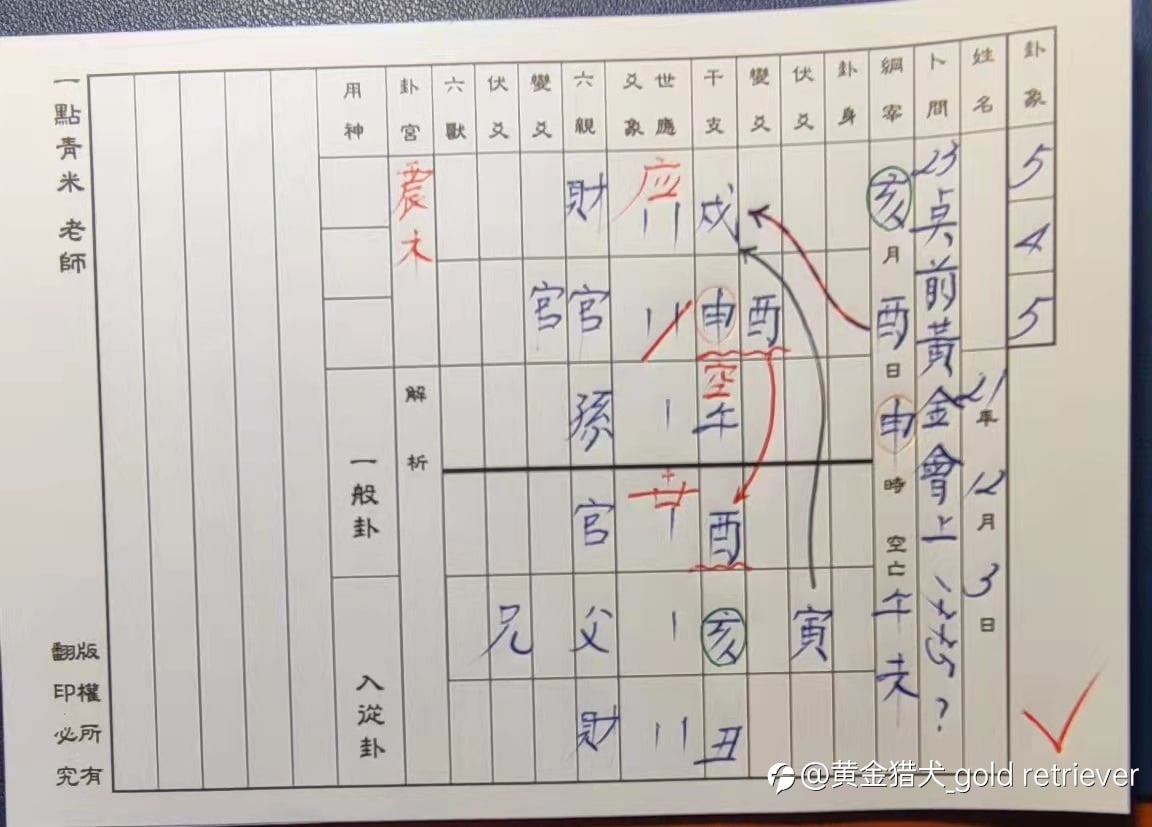 卦象 5 4 5
姓名 21年12月3日
卜問 23点前黃金會上 ?
綱宰 亥月酉日申時空亡午未
卦身
伏爻 寅
變爻 酉
干支 戌 申 空 午 酉 亥 丑
世應 应 世
爻象
六親 財 官 孫 官 父 財
變爻 官
伏爻 兄
六獸
卦宮 震木 解析
用神 一般卦 入從卦
一點青米 老師
版權所有
翻印必究
@黄金猎犬_gold retriever